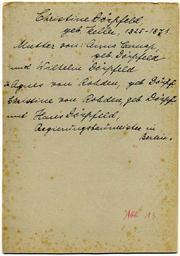 Christine Dörpfeld
geb. Keller, 1825-1871.
Mutter von: Anna Carnap,
geb. Dörpfeld
und Wilhelm Dörpfeld
Agnes von Rohden, geb Dörpf.
Christine von Rohden, geb Dörpf.
und Hans Dörpfeld,
Regierungsbaumeister in
Berlin.
Abb 13